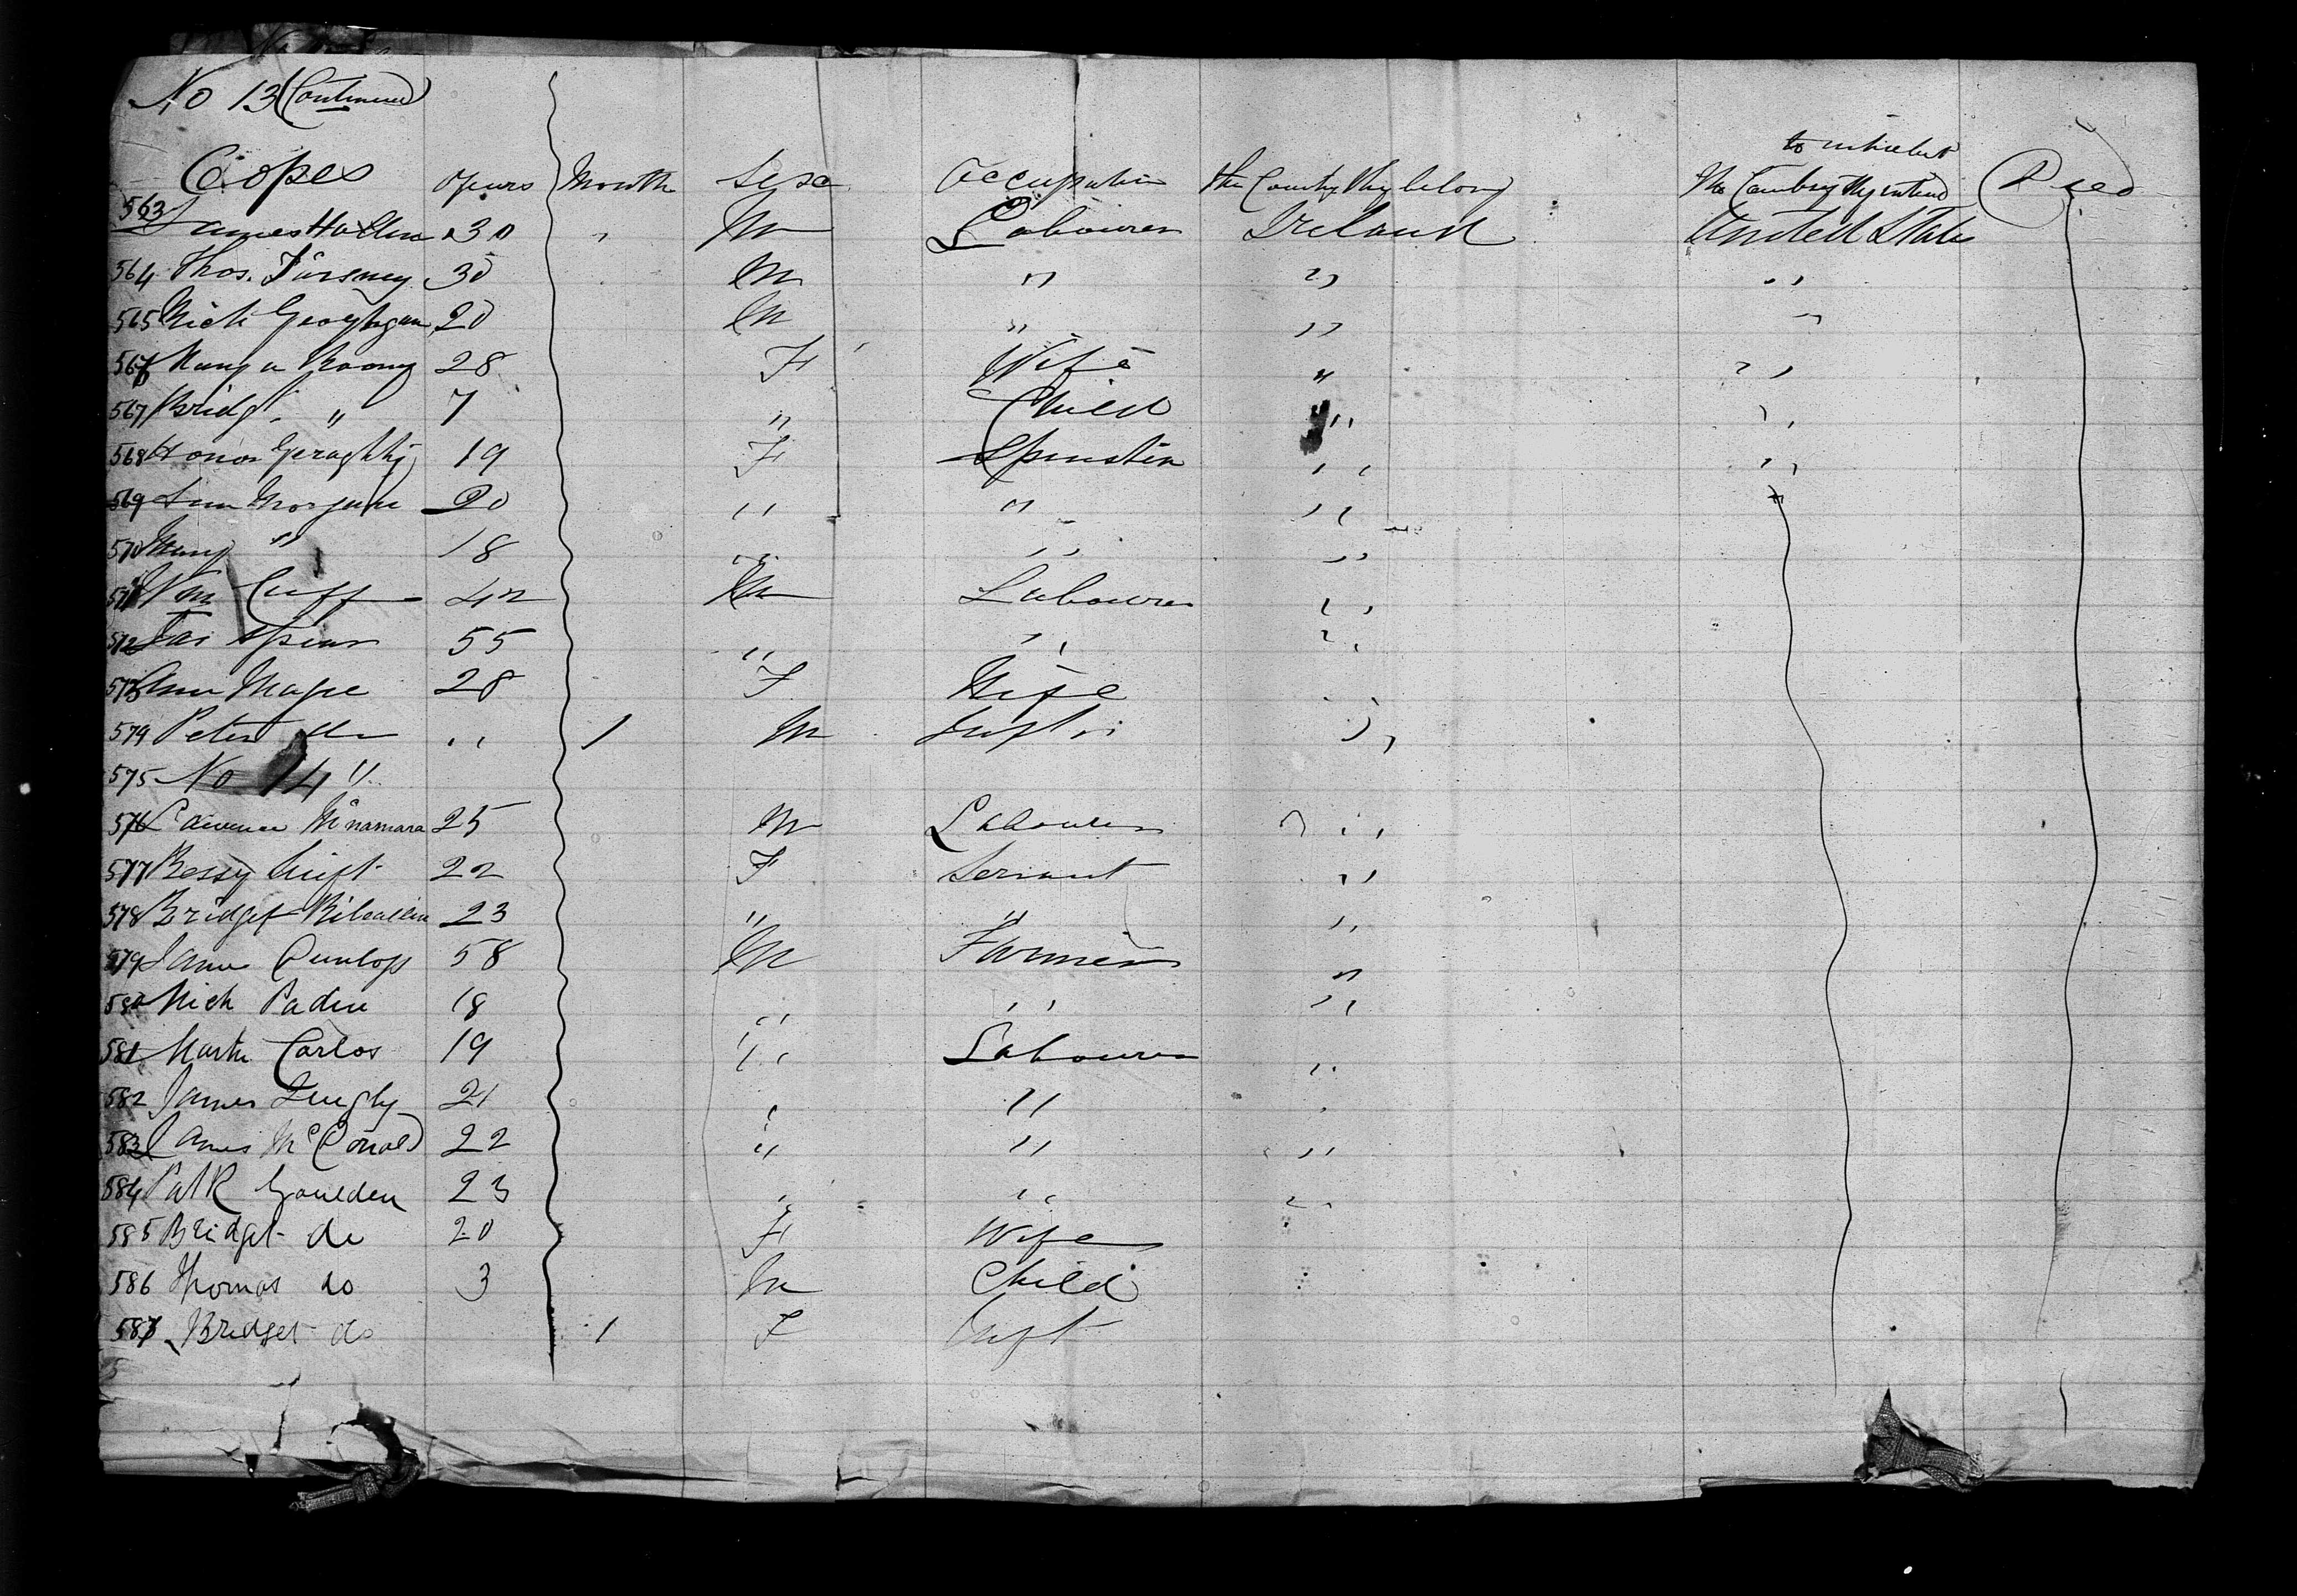 No 13 (Continued)
to inhabit
Copes Years Month Sex Occupation the Country they belong The Country they intend Died
563 James Hallen 30 " M Labourer Ireland United States
564 Thos. 30 M " " "
565 Mich Geoghegan 20 M " " "
566 Mary a Roony 28 F Wife " "
567 Bridgt. " 7 " Child " "
568 Honor Geraghty 19 F Spinster " "
569 Ann Morgan 20 " " " "
570 Mary " 18 " " "
571 Wm Cuff 42 M Labourer "
572 Jas 55 " " "
573 Ann Magee 28 F Wife "
574 Peter do " 1 M Inft "
575 No 14 "
576 Lawrence McNamara 25 M Labourer "
577 Bessy Swift 22 F Servant "
578 Bridget 23 " " "
579 James Dunlop 58 M Farmer "
580 Mich Paden 18 " " "
581 Martin Carlos 19 " Labourer "
582 James 21 " " "
583 James McDonald 22 " " "
584 Patk Goulden 23 " " "
585 Bridget do 20 F Wife "
586 Thomas do 3 M Child "
587 Bridget do 1 F Inft